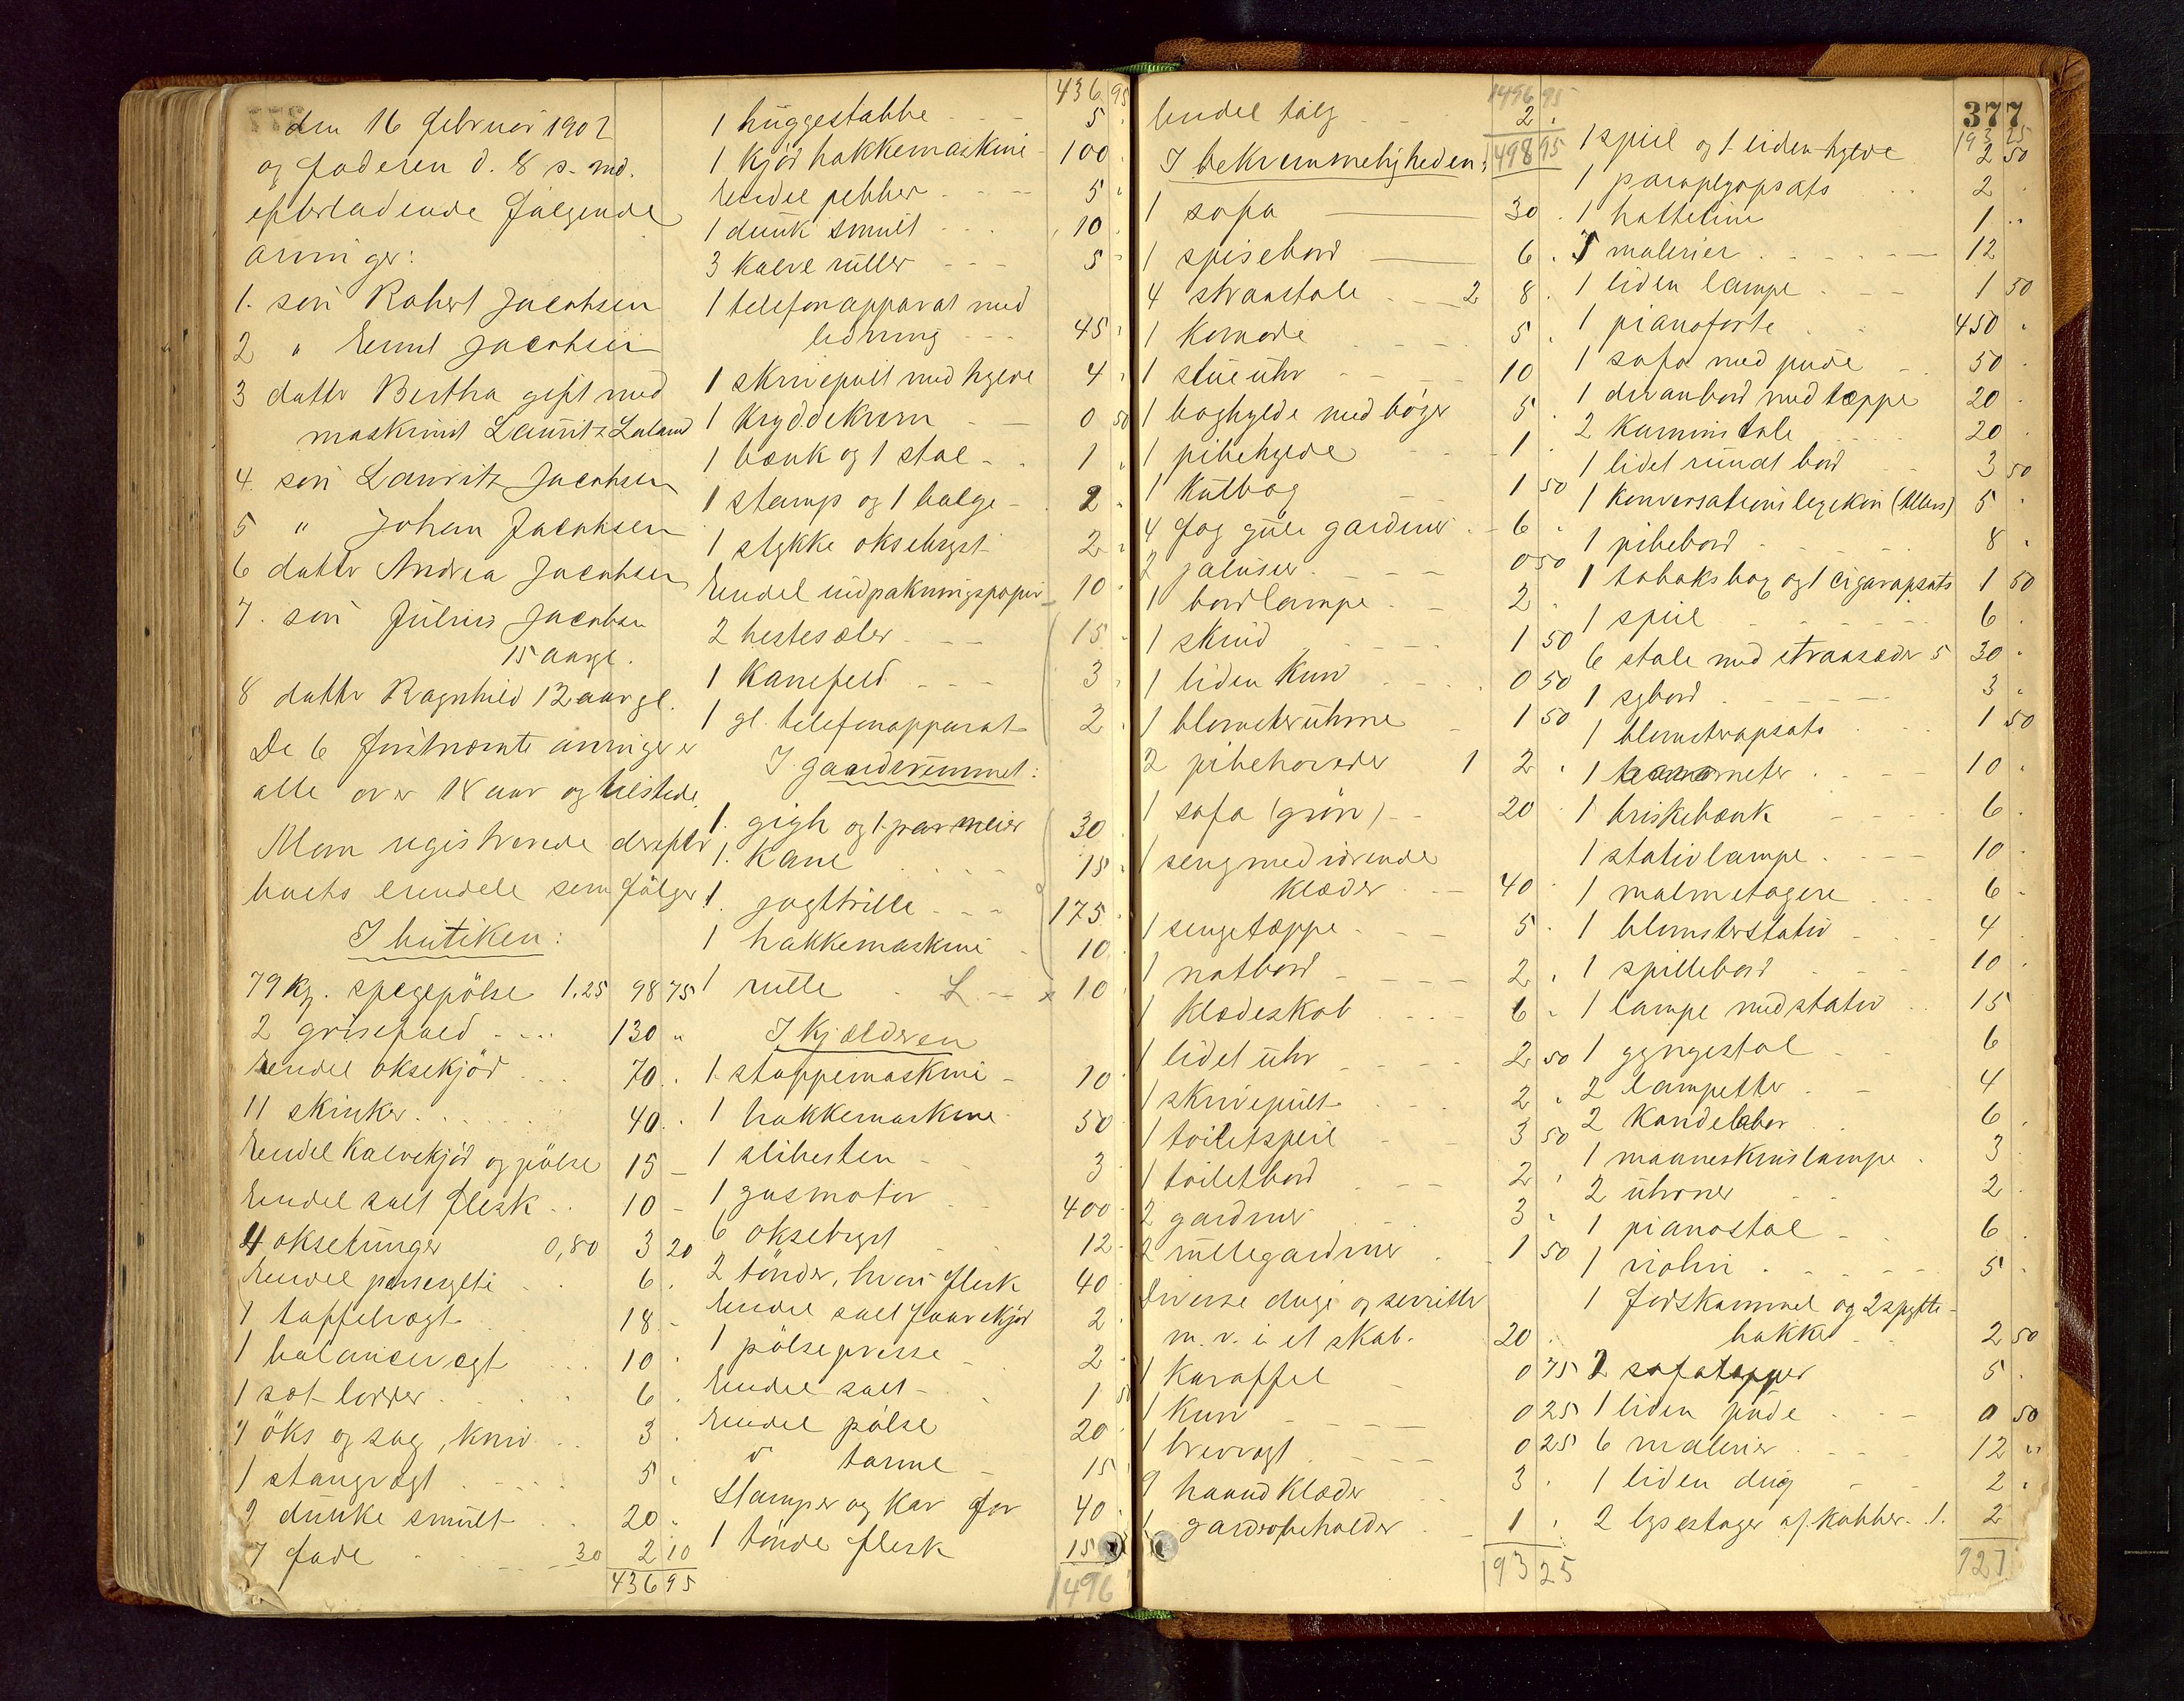 den 16 februar 1902
og faderen d. 8 s. md.
efterladende følgende
arvinger:
1. søn Robert Jacobsen
2 " Emil Jacobsen
3 datter Bertha gift med
maskinist Lauritz Laland
4. søn Lauritz Jacobsen
5 " Johan Jacobsen
6 datter Andrea Jacobsen
7. søn Julius Jacobsen
15 aar gl.
8 datter Ragnhild 12 aar gl.
De 6 førstnævnte arvinger er
alle over 18 aar og tilstede.
Man registrerede derefter
boets eiendele som følger
I butiken:
79 kg. spegepölse 1.25 98 75
2 grisefald 130 "
Endel oksekjöd 70 .
11 skinker 40 .
Endel Kalvekjöd og pölse 15 –
Endel salt flesk 10 –
4 oksetunger 0,80 3 20
Endel persesylte 6 .
1 taffelvægt 18 –
1 balancevægt 10 .
1 sæt lodder 6 .
1 öks og sag, kniv 3 .
1 stangvægt 5 .
2 dunke smult 20 .
7 fade 30 2 10
436 95
436 95
1 huggestabbe 5 .
1 kjödhakkemaskine 100 .
Endel pebber 5 .
1 dunk smult 10 .
3 kalveruller 5 .
1 telefonapparat med
ledning 45 .
1 skrivepult med hylde 4 .
1 kryddekvern 0 50
1 bænk og 1 stol 1 .
1 stamp og 1 balge 2 .
1 stykke oksebryst 2 .
Endel indpakningspapir 10 .
2 hesteseler 15 .
1 kanefeld 3 .
1 gl. telefonapparat 2 .
I gaardsrummet:
1. gigh og 1 par meier 30 .
1. kane 15 .
1. jagttrille 175 .
1 hakkemaskine 10 .
1 rulle L. x 10 .
I kjælderen
1. stoppemaskine 10 .
1 hakkemaskine 50 .
1 slibesten 3 .
1 gasmotor 400 .
6 oksebryst 12 .
2 tönder, hvori flesk 40 .
Endel salt faarekjöd 2 .
1 pölsepresse 2 .
Endel salt 1 50
Endel pölse 20 .
" tarme 15 .
Stamper og kar for 40 .
1 tönde flesk 15
1496
1496 95
Endel talg 2 .
1498 95
I bekvemmeligheden:
1 sofa 30 .
1 spisebord 6 .
4 straastole 2 8 .
1 komode 5 .
1 stueuhr 10
1 boghylde med bøger 5 .
1 pibehylde 1 .
1 kulbox 1 50
4 fag gule gardiner 6 .
2 jalusier 0 50
1 bordlampe 2 .
1 skind 1 50
1 liden kurv 0 50
1 blomsterurne 1 50
2 pibehoveder 1 2 .
1 sofa (grön) 20
1 seng med iværende
klæder 40 .
1 sengetæppe 5 .
1 natbord 2 .
1 klædeskab 6 .
1 lidet uhr 2 50
1 skrivepult 2 .
1 toiletspeil 3 50
1 toiletbord 2 .
2 gardiner 3 .
2 rullegardiner 1 50
Diverse duge og servietter
m. v. i et skab. 20 .
1 karaffel 0 75
1 kurv 0 25
1 brevvægt 0 25
9 haandklæder 3 .
1 garderobeholder 1 .
193 25
377
193 25
1 speil og 1 liden hylde 2 50
1 paraplyopsats 2 .
1 hatteline 1 ..
3 malerier 12
1 liden lampe 1 50
1 pianoforte 450 .
1 sofa med pude 50 .
1 divanbord med tæppe 20 .
2 kaminstole 20 .
1 lidet rundt bord 3 50
1 konversationslexikon (Allers) 5 .
1 pibebord 8 .
1 tobaksbox og 1 cigaropsats 1 50
1 speil 6 .
6 stole med straasæder 5 30 .
1 sybord 3 .
1 blomsteropsats 1 50
1 barometer 10 .
1 briskebænk 6 .
1 stativlampe 10 .
1 malmetagere 6 .
1 blomsterstativ 4
1 spillebord 10 .
1 lampe med stativ 15
1 gyngestol 6
2 lampetter 4
2 kandelaber 6 .
1 maaneskinslampe 3 .
2 uhrner 2 .
1 pianostol 6 .
1 violin 5 .
1 fodskammel og 2 spytte-
bakker 2 50
2 sofatæpper 5 .
1 liden pude 0 50
6 malerier 12 "
1 liden dug 2 .
2 lysestager af kobber. 1. 2
927